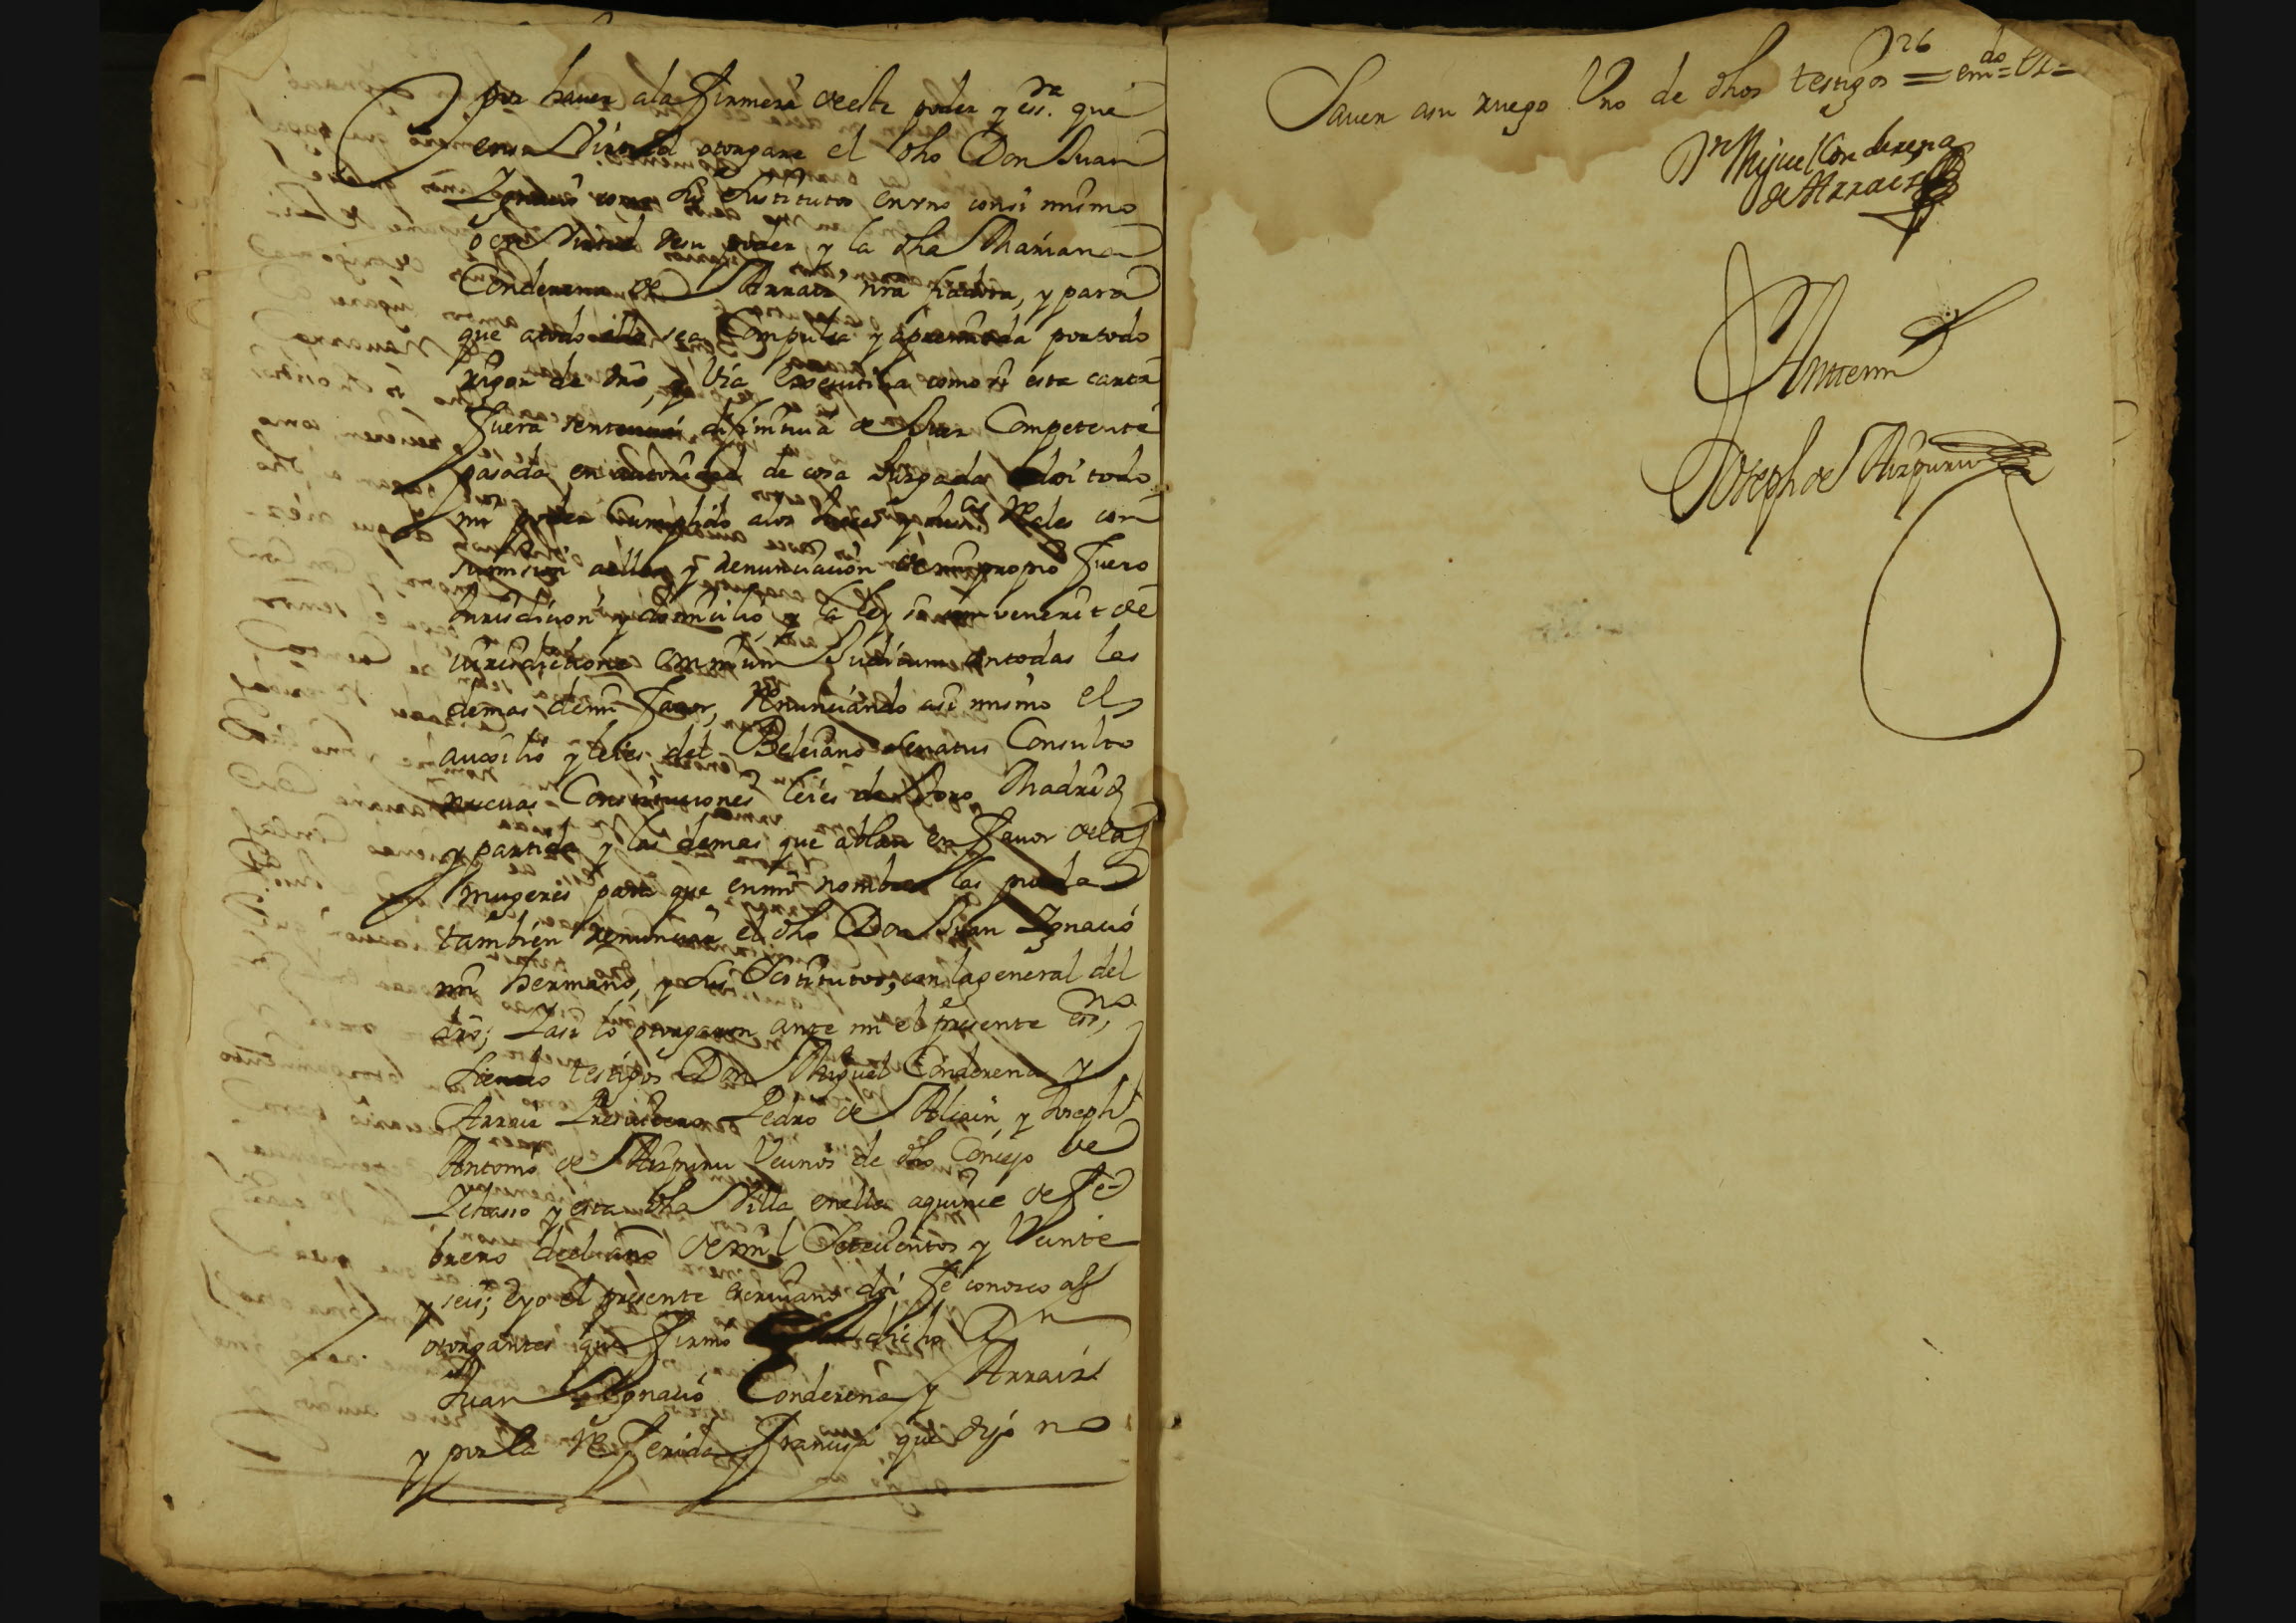 por hauer ala firmeza de este poder y essra. que
en su Virtud otorgare el dho Don Juan
Ygnacio como sus sustitutos en vno con si mismo
o en Virtud de su poder y la dha Mariana
Conderena de Arraiz nra fiadora, y para
que a todo ello sea Compulsa y apremiada por todo
rigor de dro, y Via executiba como si esta carta
fuera sentencia difinitiua de Juez Competente
pasada en autoridad de cosa Juzgada doi todo
mi poder Cumplido a los Jueces y Just.as Reales con
sumision a ellos y renunciacion de mi propio fuero
Jurisdicion y domicilio y la ley si con venerit de
iurisdictione omnium Judicum con todas las
demas de mi fauor, Renunciando asi mismo el
auxilio y leies del Beleiano Senatus Consulto
nueuas Constituciones leies de Toro, Madrid
y partida y las demas que ablan en fauor de las
mugeres para que en mi nombre las pueda
tambien renunciar el dho Don Juan Ygnacio
mi hermano, y sus Sostitutos, con la general del
dro; Y asi lo otorgaron ante mi el presente essno,
Siendo testigos Don Miguel Conderena y
Arraiz Presuitero Pedro de Aliain, y Joseph
Antonio de Aizpuru Vecinos de dho Concejo de
y esta dha Villa en ella a quince de fe-
brero de el año de mil Setecientos y Veinte
y seis; e yo el presente escriuano doi fe conozco a los
otorgantes que firmo el dicho Dn
Juan Ygnacio Conderena y Arraiz
y por la Referida Francisca que dijo no
Sauer a su ruego Vno de dhos testigos = emdo =
26
Dn Miguel Conderena
de Arraiz
Ante mi
Joseph de Aizpuru